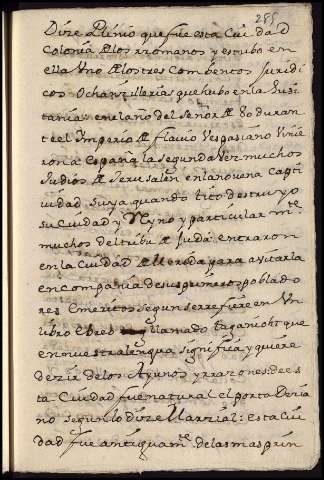 285
Dize Plinio que fue esta Ciudad
Colonia de los rromanos y estubo en
ella Uno de los tres Combentos Juridi
cos o chanzillerias que hubo en la Lusi
tania: en el año del Señor de 80 duran
te el Imperio de flavio Vespasiano Vinie
ron a españa la segunda Vez muchos
Judios de Jerusalen en la novena capti
uidad suya quando tito destruyo
su Ciudad y Reyno y particularmte
muchos del tribu de Juda: entraron
en la Ciudad de Merida para avitarla
en compañia de sus primeros poblado
res Emeritos segun se rrefiere en Un
libro Ebreo llamado taganioht que
en nuestra lengua significa y quiere
dezir de los Ayunos y rrazones de es
ta Ciudad fue natural el poeta Dezia
no segun lo dize Marzial: esta Ciu
dad fue antiguamte de las mas prin